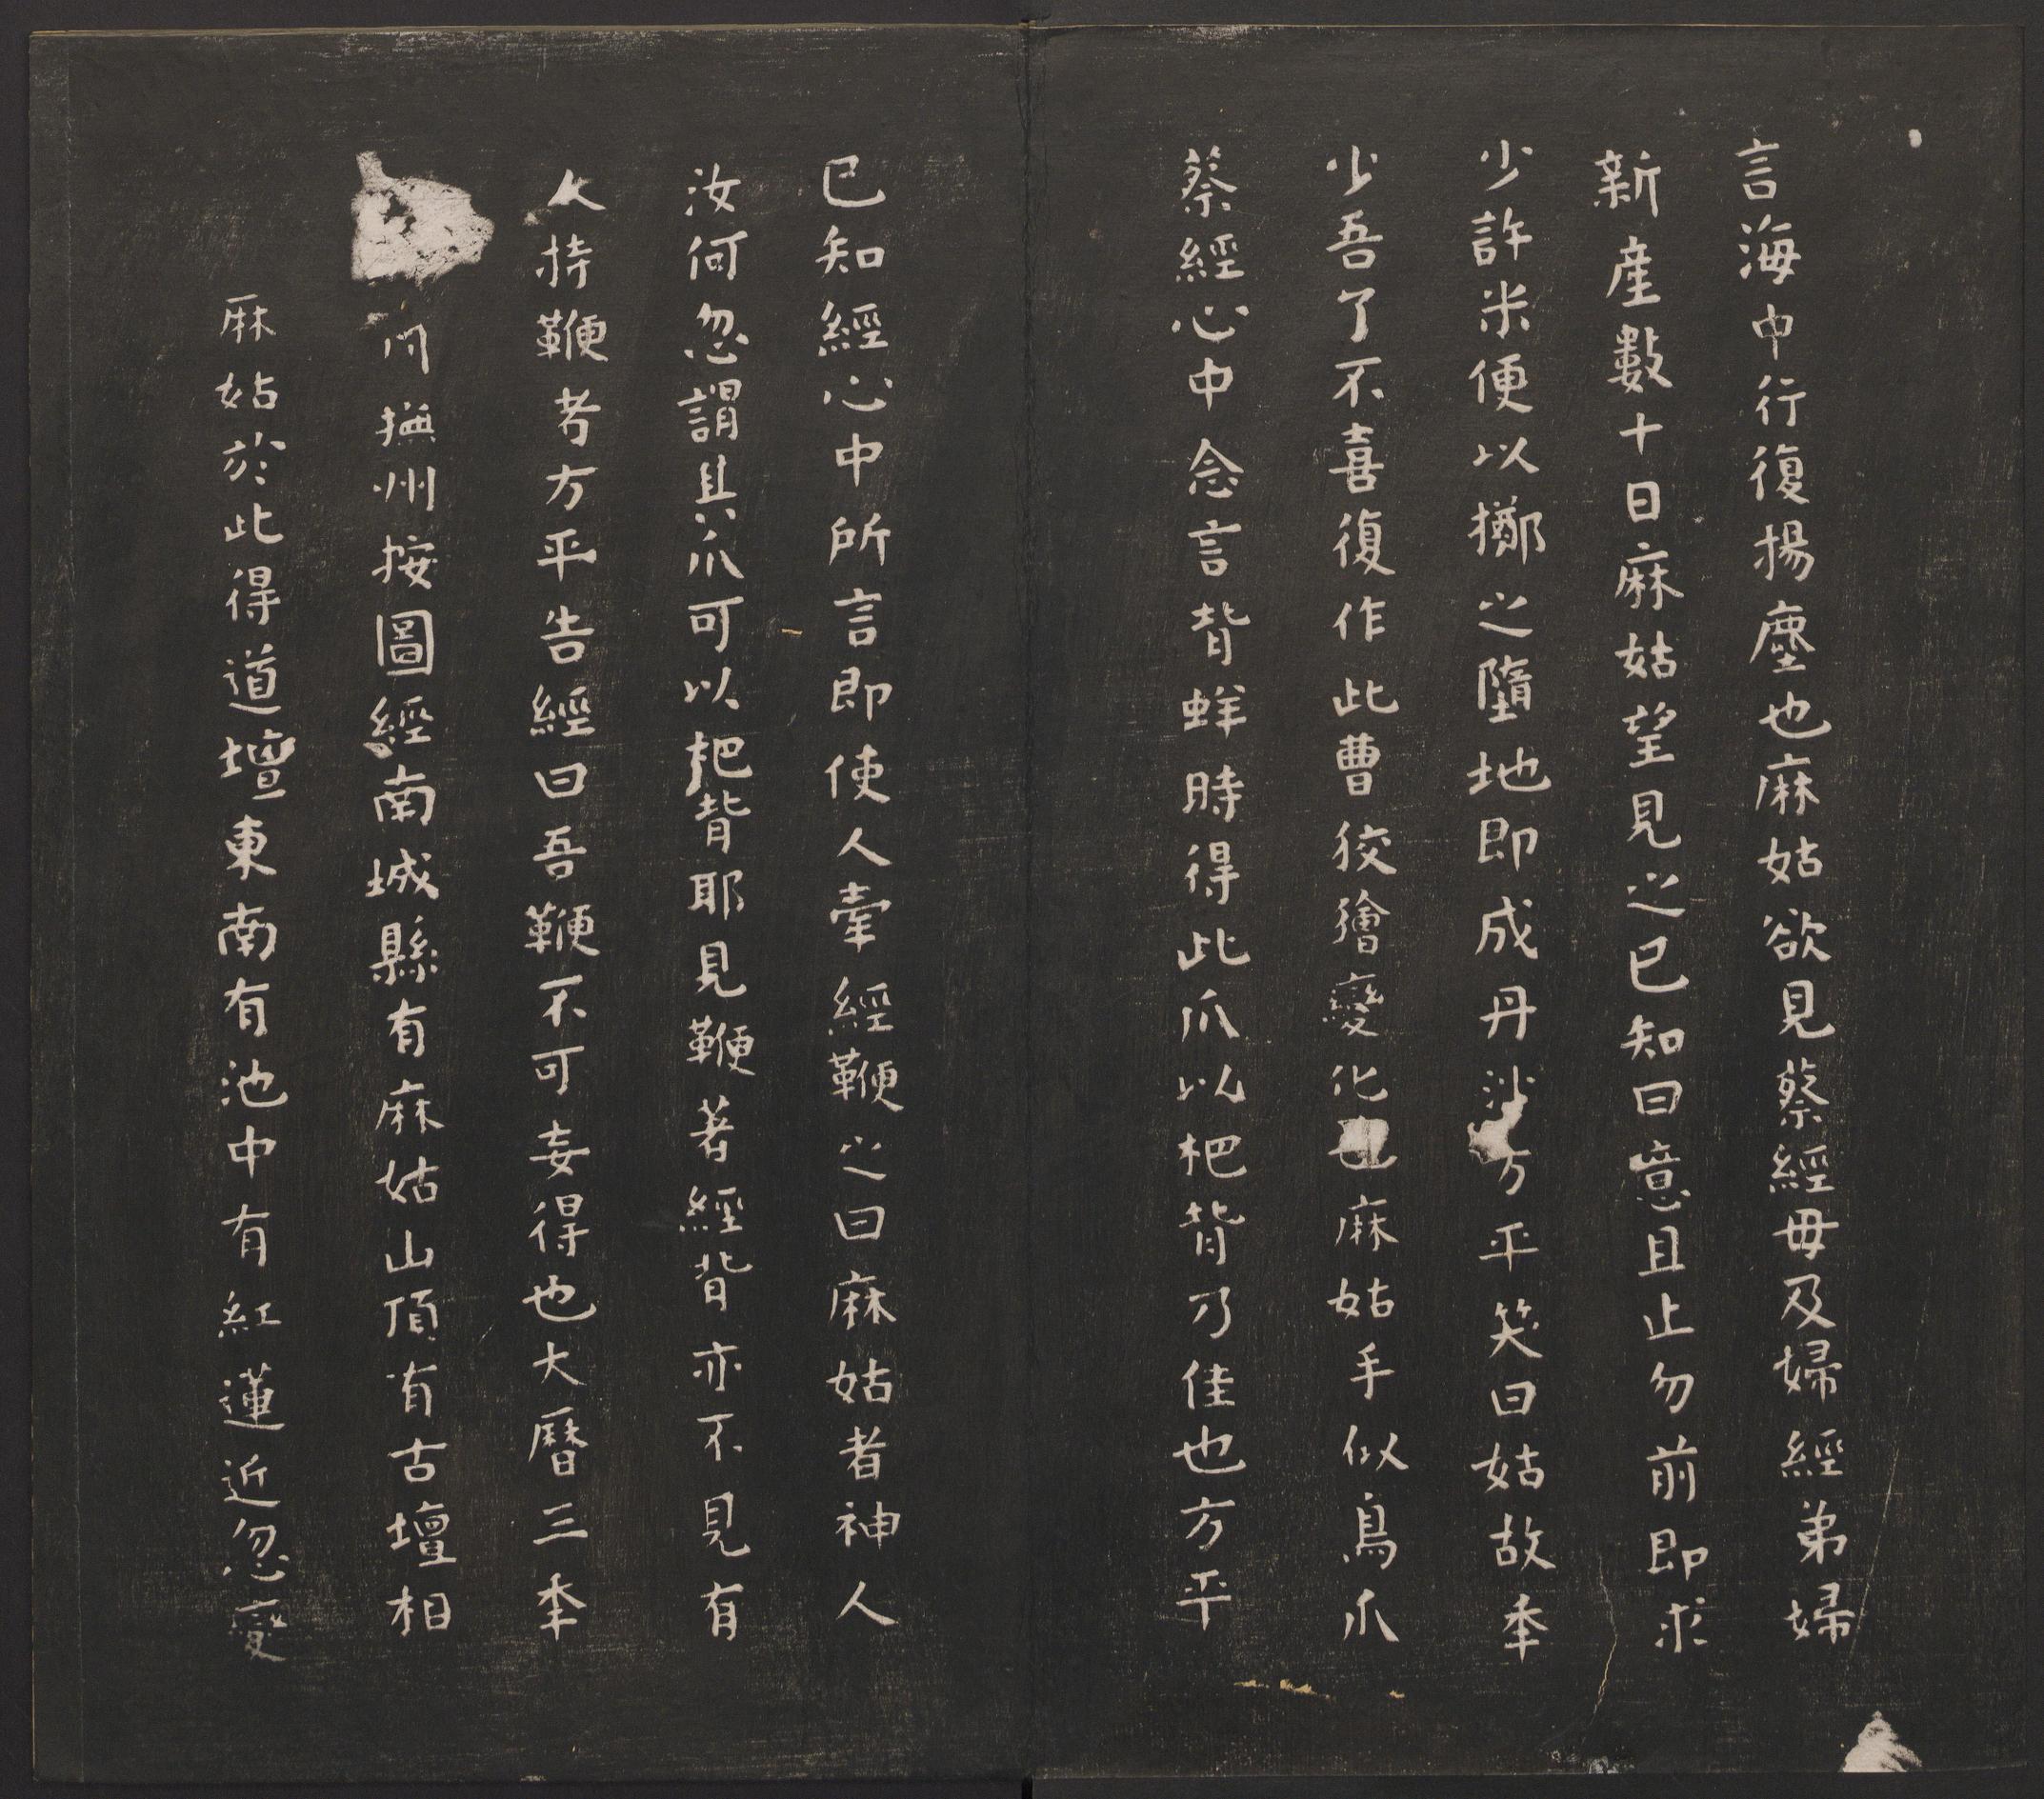 言海中行復揚塵也麻姑欲見蔡經母及婦經弟婦
新産數十日麻姑望見之已知曰意且止勿前即求
少許米便以擲之墮地即成丹沙方平笑曰姑故秊
少吾了不喜復作此曹狡獪變化也麻姑手似鳥爪
蔡經心中念言背蛘時得此爪以杷背乃佳也方平
已知經心中所言即使人牽經鞭之曰麻姑者神人
汝何忽謂其爪可以杷背耶見鞭著經背亦不見有
人持鞭者方平告經曰吾鞭不可妄得也大曆三秊
撫州按圖經南城縣有麻姑山頂有古壇相
麻姑於此得道壇東南有池中有紅蓮近忽變